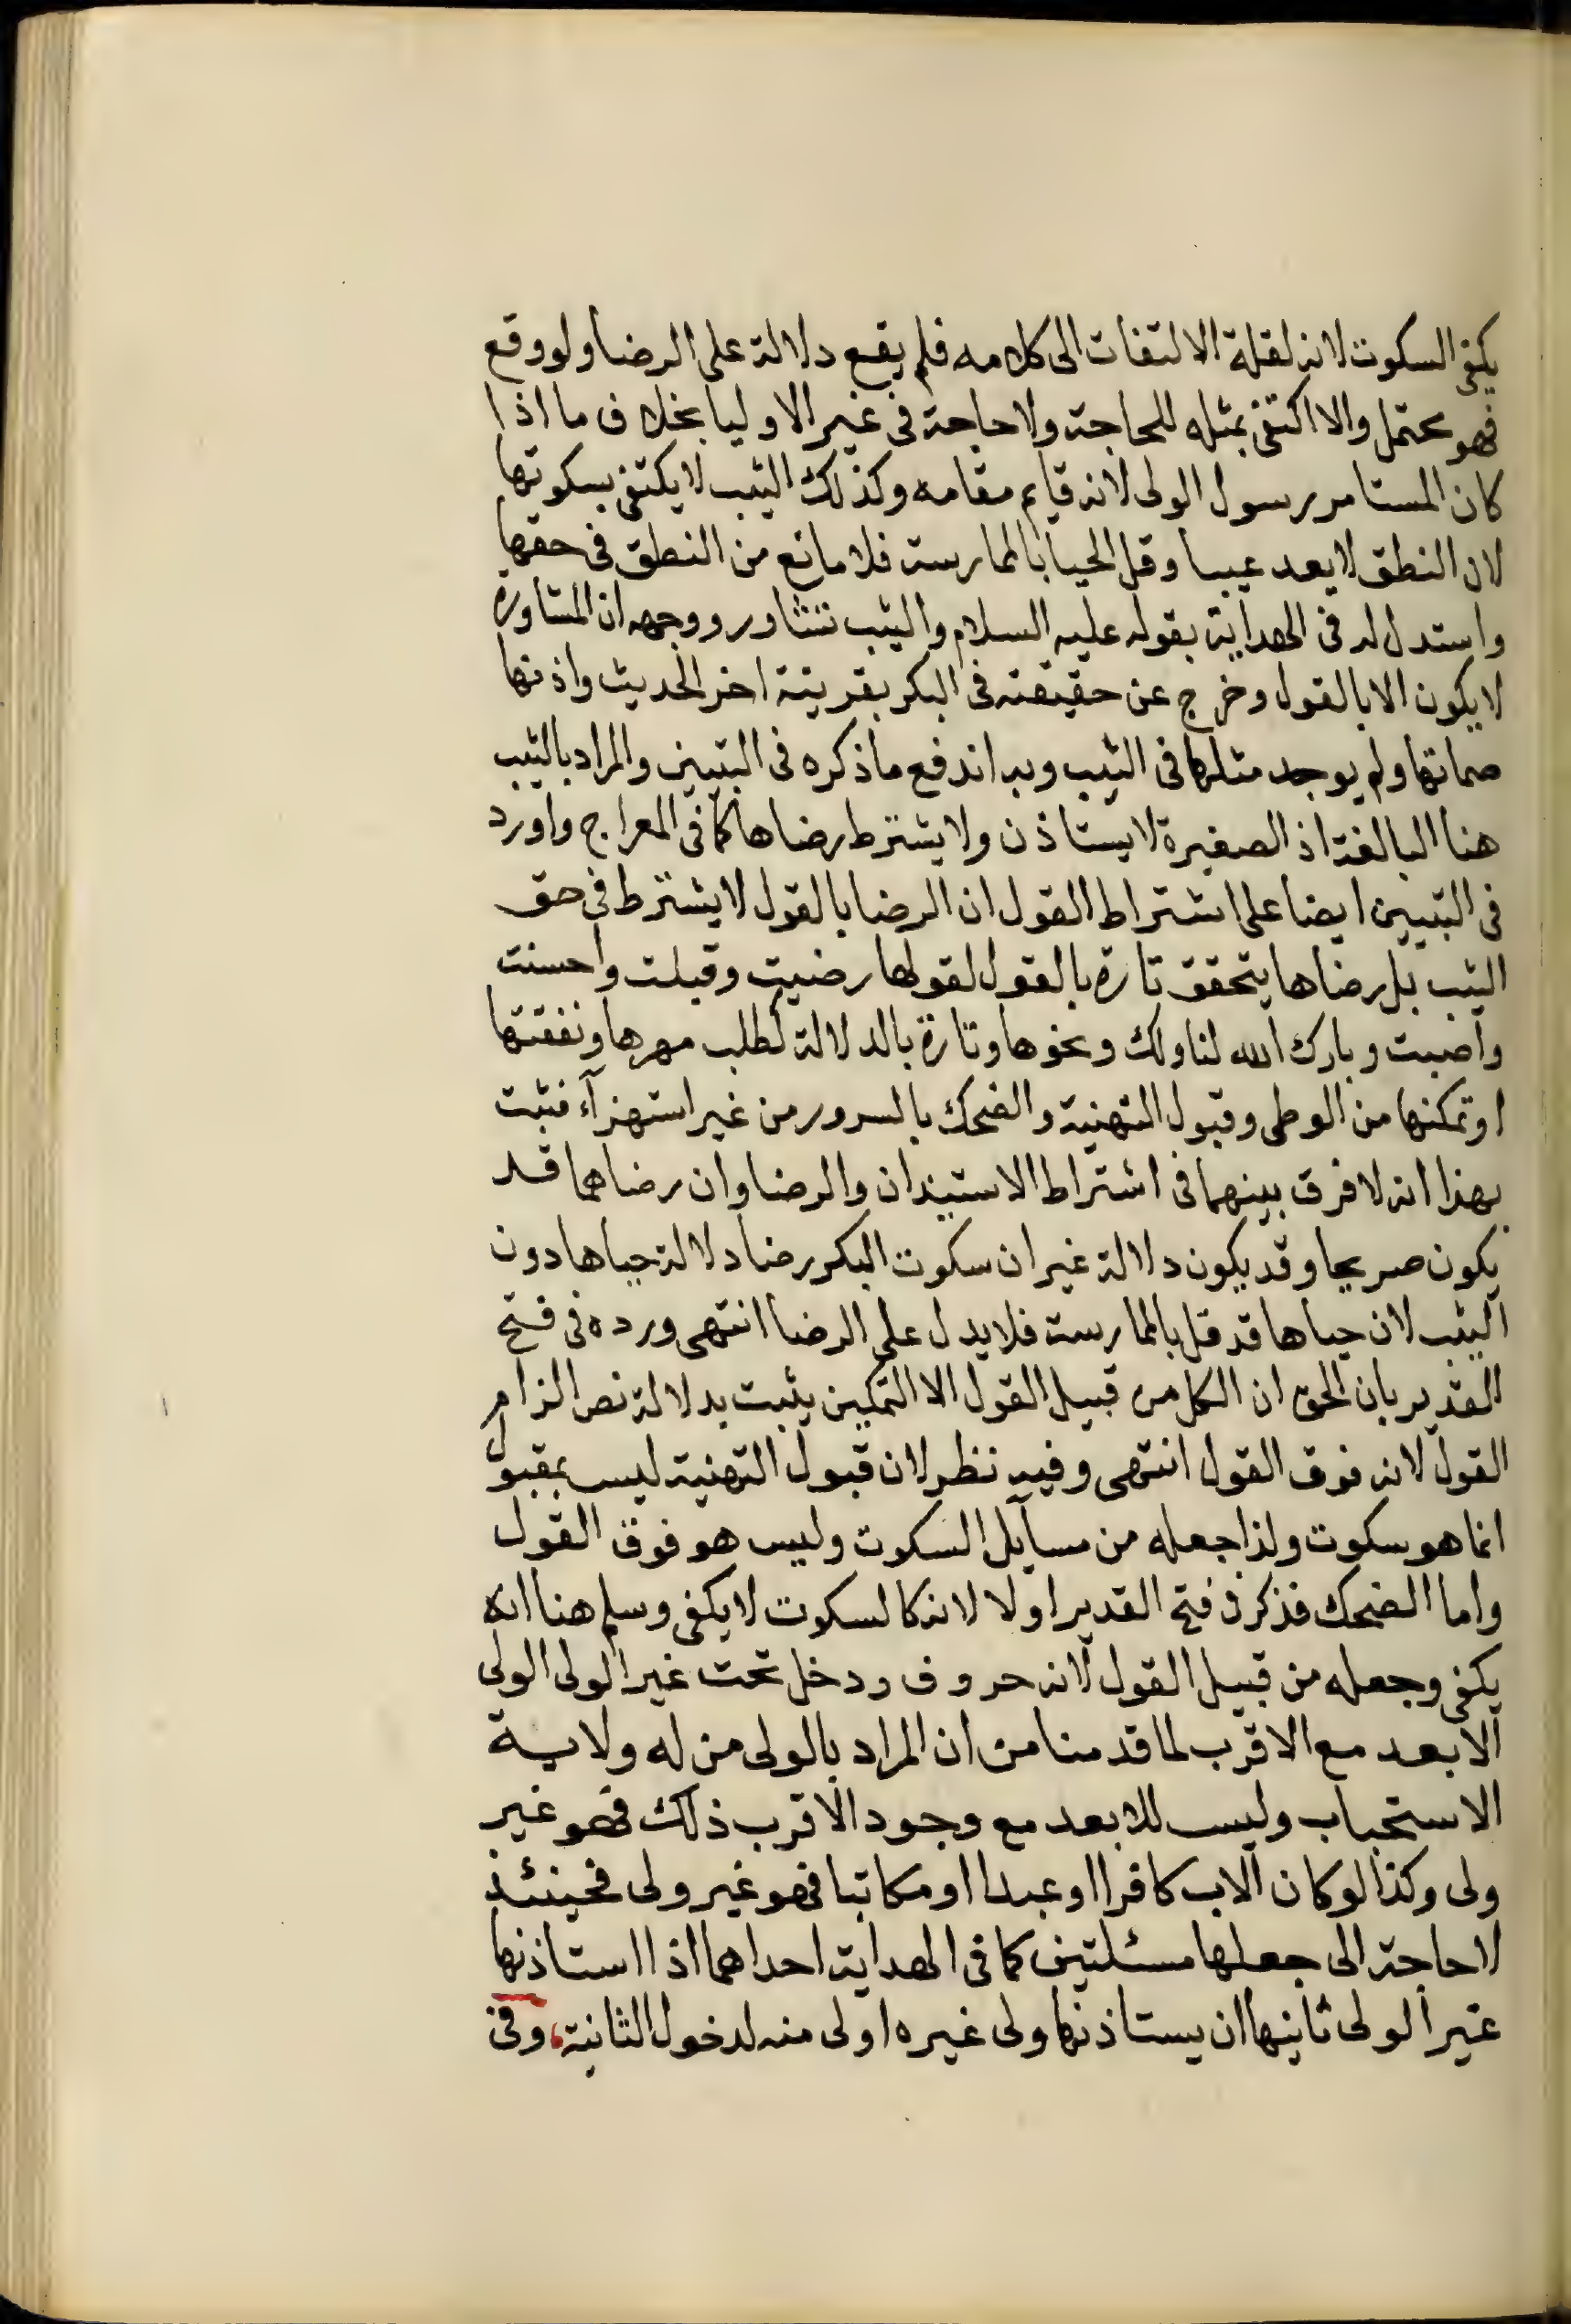 يكفى السكوت لانه لقلة الالتفات الى كلامه فلم يقع دلالة على الرضا ولو وقع
فهو محتمل والا اكتفى بمثله للحاجة ولا حاجة فى غير الاوليا بخلاف ما اذا
كان المستامر رسول الولى لانه قايم مقامه وكذلك الثيب لا يكتفى بسكوتها
لان النطق لا يعد عيبا وقل الحيا بالممارسة فلا مانع من النطق فى حقها
واستدل له فى الهداية بقوله عليه السلام والثيب تشاور ووجهه ان المشاورة
لا يكون الا بالقول وخرج عن حقيقته فى البكر بقرينة اخر الحديث واذنها
صماتها ولم يوجد مثلها فى الثيب وبه اندفع ما ذكره فى التبيين والمراد بالثيب
هنا البالغة اذ الصغيرة لا يستاذن ولا يشترط رضاها كما فى المعراج واورد
فى التبيين ايضا على اشتراط القول ان الرضا بالقول لا يشترط فى حق
الثيب بل رضاها يتحقق تارة بالقول لقولها رضيت وقبلت واحسنت
واصبت وبارك الله لنا ولك ونحوها وتارة بالدلالة لطلب مهرها ونفقتها
او تمكنها من الوطى وقبول التهنية والضحك بالسرور من غير استهزآء فثبت
بهذا انه لا فرق بينهما فى اشتراط الاستيذان والرضا وان رضاهما قد
يكون صريحا وقد يكون دلالة غير ان سكوت البكر رضا دلالة حياها دون
الثيب لان حياها قد قل بالممارسة فلا يدل على الرضا انتهى ورده فى فتح
القدير بان الحق ان الكل من قبيل القول الا التمكين يثبت بدلالة نص الزام
القول لانه فوق القول انتهى وفيه نظر لان قبول التهنية ليس بمقبول
انما هو سكوت ولذا جعله من مسآيل السكوت وليس هو فوق القول
واما الضحك فذكر فى فتح القدير اولا لانه كالسكوت لا يكفى وسلم هنا انه
يكفى وجعله من قبيل القول لانه حروف ودخل تحت غير الولى الولى
الابعد مع الاقرب لما قدمنا من ان المراد بالولى من له ولاية
الاستحباب وليس للابعد مع وجود الاقرب ذلك فهو غير
ولى وكذا لو كان الاب كافرا او عبدا او مكاتبا فهو غير ولى فحينئذ
لا حاجة الى جعلها مسئلتين كما فى الهداية احداهما اذا استاذنها
غير الولى ثانيها ان يستاذنها ولى غيره اولى منه لدخول الثانية، وفى